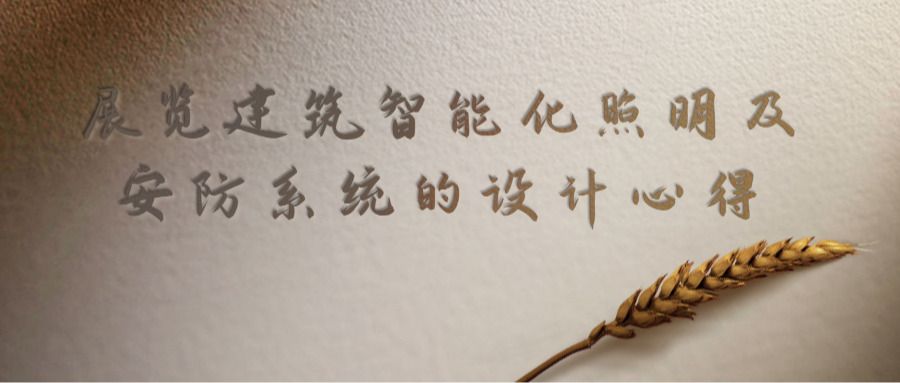 展览建筑智能化照明及
安防系统的设计心得